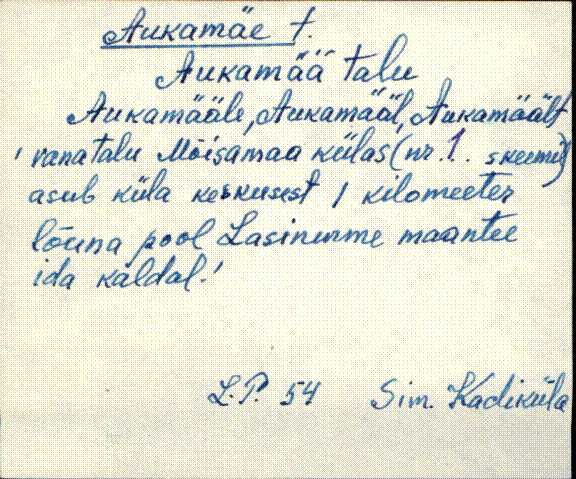 Aukamäe t.
Aukamää talu
Aukamääle, Aukamääl, Aukamäält
' vana talu Mõisamaa külas (nr. 1. skeemil)
asub küla keskusest 1 kilomeeter
lõuna pool Lasinurme maantee
ida kaldal.'
L.P. 54 Sim. Kadiküla